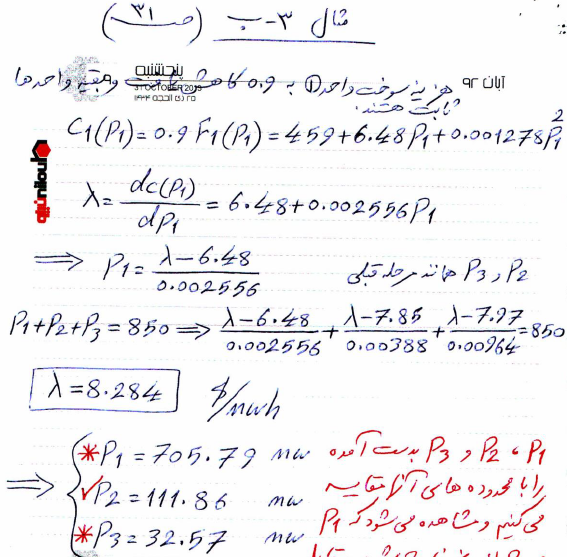 مثال ۳-ب (صـ ۳۱)
پنجشنبه
31 OCTOBER 2013
۲۵ ذی الحجه ۱۴۳۴
آبان ۹۲
هزینه سوخت واحد ① به 0.9 کاهش یافت و بقیه واحدها
ثابت هستند.
C1(P1) = 0.9 F1(P1) = 459 + 6.48 P1 + 0.001278 P1²
λ = dc(P1) / dP1 = 6.48 + 0.002556 P1
⟹ P1 = (λ - 6.48) / 0.002556 P2 و P3 همانند مرحله قبلی
P1 + P2 + P3 = 850 ⟹ (λ - 6.48) / 0.002556 + (λ - 7.85) / 0.00388 + (λ - 7.97) / 0.00964 = 850
λ = 8.284 $/mwh
⟹ * P1 = 705.79 mw
✓ P2 = 111.86 mw
* P3 = 32.57 mw
P1 ، P2 و P3 بدست آمده
را با محدوده های آنها مقایسه
می کنیم و مشاهده می شود که P1